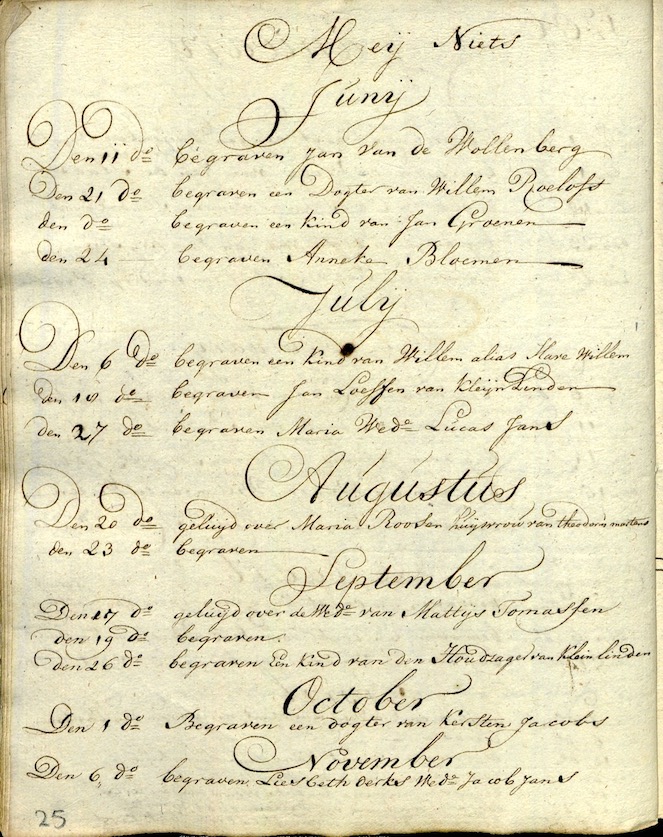 Meij Niets
Junij
Den 11 do begraven Jan van de Wollenberg
Den 21 do begraven een Dogter van Willem Roeloffs
den do begraven een Kind van Jan Groenen
den 24 begraven Anneke Bloemen
Julij
Den 6 do begraven een Kind van Willem alias Hare Willem
den 18 do begraven Jan Loeffen van Kleijn Linden
den 27 do begraven Maria Wede Lucas Jans
Augustus
Den 20 do geluijd over Maria Roosen huijsvrou van theodorus martens
den 23 do begraven
September
Den 17 do geluijd over de Wede van Mattijs Tomassen
den 19 do begraven.
den 26 do begraven Een Kind van den Houdzager van Klein linden
October
Den 1 do Begraven een dogter van Kersten Jacobs
November
Den 6 do begraven Liesbeth derks Wede Jacob Jans
25